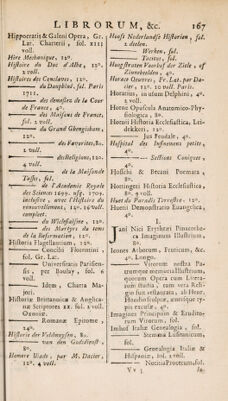 LIBRORUM, &c. 167
Hippocratis & Galeni Opera, Gr.
Lat. Charterii, fol. XIII
voll.
Hire Mechanique, 12°.
Histoire du Duc d'Albe, 12°.
2 voll.
Histoires des Conclaves, 12°.
du Dauphiné, fol. Paris
1711.
des demeslés de la Cour
de France, 4°.
des Maisons de France,
fol. 2 voll.
du Grand Ghengischam,
12°.
des Favorites, 8°.
des Religions, 12°.
4 voll.
de la Maison de
fol.
de l'Academie Royale
des Sciences 1699. usq. 1709.
inclusive, avec l'Histoire du
renouvellement, 12°. 16 voll.
complect.
du Wiclefianisme, 12°.
des Martyrs du tems
de la Reformation, 12°.
Historia Flagellantium, 12°.
Concilii Florentini,
fol. Gr. Lat.
Universitatis Parisiensis,
per Boulay, fol. 6
voll.
Idem, Charta
Majori.
Historiæ Britannicæ & Anglicanæ
Scriptores XX. fol. 2 voll.
Oxoniæ.
Romanæ Epitome,
24°.
Historie der Veldmuysen, 8°.
van den Godsdienst,
8°.
Homere Iliade, par M. Dacier,
12°. 4 voll.
Hoofs Nederlandsche Historien, fol.
2 deelen.
Werken, fol.
Tacitus, fol.
Hoogstraten Voorhof der Ziele, of
Zinnebeelden, 4°.
Horace Oeuvres, Fr. Lat. par Dacier,
12°. 10 voll. Paris.
Horatius, in usum Delphini, 4°.
2 voll.
Horne Opuscula Anatomico-Physiologica,
8°.
Hornii Historia Ecclesiastica, Leidekkeri,
12°.
Jus Feudale, 4°.
Hospital des Infumenz petits,
4°.
Sections Coniques,
4°.
Hoschii & Becani Poemata,
8°.
Hottingeri Historia Ecclesiastica,
8°. 9 voll.
Huet du Paradis Terrestre, 12°.
Huetii Demonstratio Evangelica,
4°.
I.
Jani Nici Erythræi Pinacotheca
Imaginum Illustrium,
8°.
Icones Arborum, Fruticum, &c.
4°. Longo.
Virorum nostra Patrumque
memoria Illustrium,
quorum Opera cum Literarum
studia, tum vera Religio
fuit restaurata, ab Henr.
Hondio sculptæ, antique typis
excusæ, 4°.
Imagines Principum & Eruditorum
Virorum, fol.
Imhof Italiæ Genealogia, fol.
Stemma Lusitanicum,
fol.
Genealogia Italiæ &
Hispaniæ, fol. 2 voll.
Notitia Procerum, fol.
Vv 3